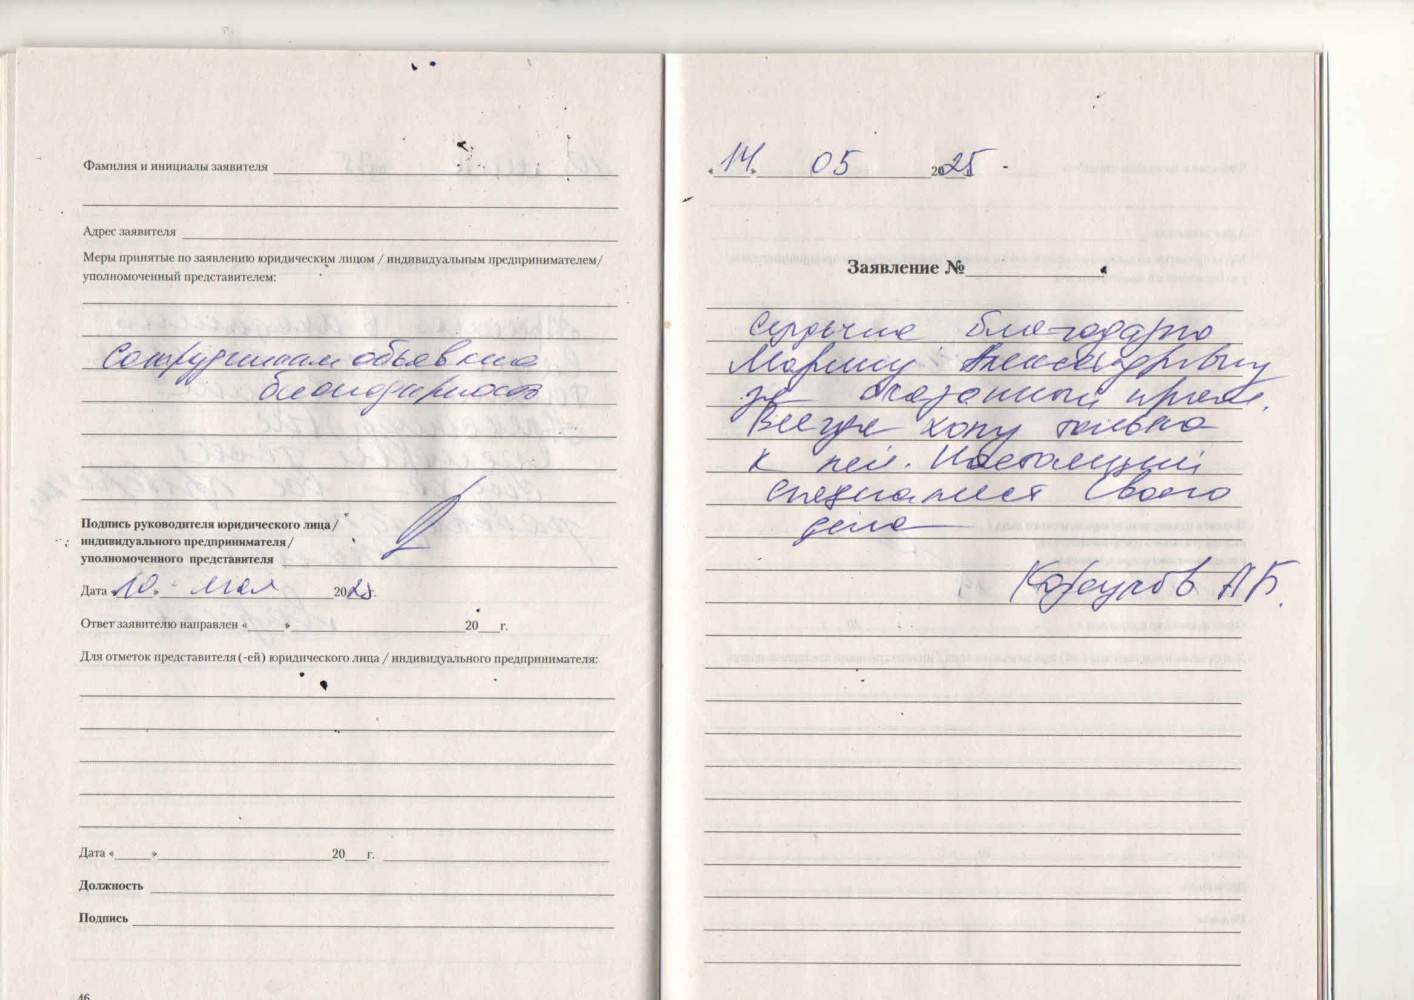 Фамилия и инициалы заявителя
Адрес заявителя
Меры принятые по заявлению юридическим лицом / индивидуальным предпринимателем/
уполномоченный представителем:
Сотрудникам объявлена
благодарность
Подпись руководителя юридического лица/
индивидуального предпринимателя/
уполномоченного представителя
Дата «10» мая 2025г.
Ответ заявителю направлен «____»____ 20___г.
Для отметок представителя (-ей) юридического лица / индивидуального предпринимателя:
Дата «____»____ 20___г.
Должность
Подпись
46
«14» 05 2025г.
Заявление №
Сердечно благодарю
Марину Александровну
за оказанный прием.
Всегда хожу только
к ней. Настоящий
специалист своего
дела